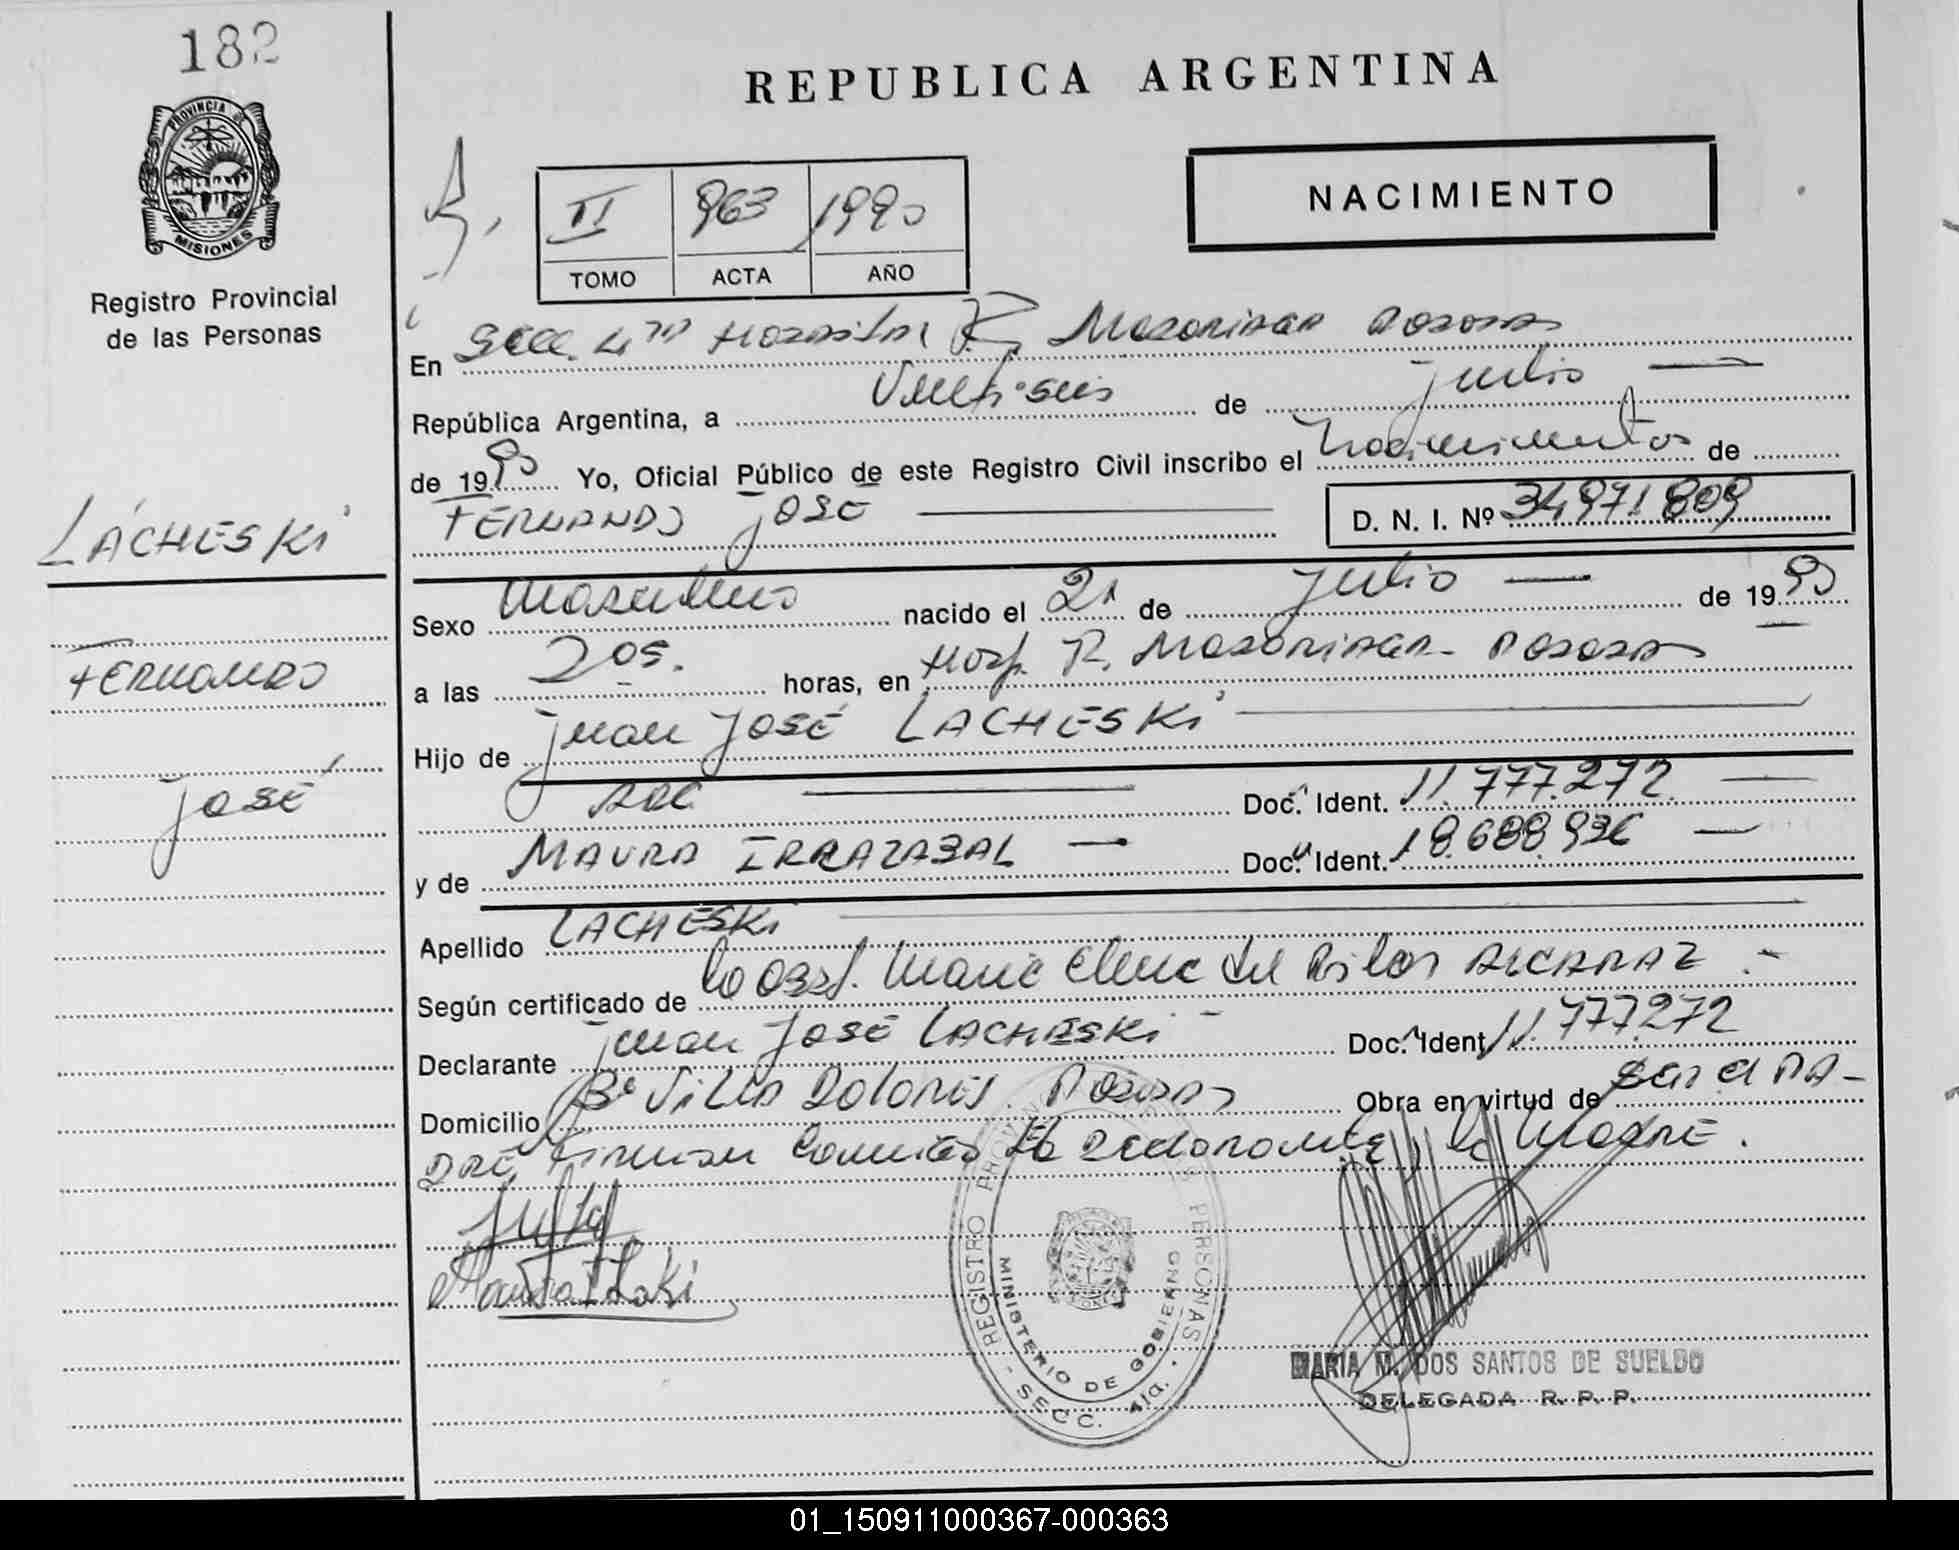 182
REPUBLICA ARGENTINA
PROVINCIA DE
MISIONES
Registro Provincial
de las Personas
NACIMIENTO
II 963 1990
TOMO ACTA AÑO
En Secc. 4ta Hospital R. Madariaga Posadas
República Argentina, a Veintiseis de julio
de 1990 Yo, Oficial Público de este Registro Civil inscribo el Nacimiento de
FERNANDO JOSE D. N. I. Nº 34971809
LACHESKI
FERNANDO
JOSÉ
Sexo Masculino nacido el 21 de julio de 1990
a las 2 05. horas, en Hosp. R. Madariaga - Posadas
Hijo de Juan José LACHESKI
Doc. Ident. 11.777.272
y de MAURA IRRAZABAL Doc. Ident. 18.688.936
Apellido LACHESKI
Según certificado de la Obst. Maria Elena del Pilar ALCARAZ
Declarante Juan José LACHESKI Doc. Ident 11.777272
Domicilio Bº Villa Dolores. Posadas Obra en virtud de ser el PA-
DRE Firman conmigo El declarante y la MADRE.
REGISTRO PROVINCIAL DE LAS PERSONAS
MINISTERIO DE GOBIERNO
SECC. 4ta.
MARIA M. DOS SANTOS DE SUELDO
DELEGADA R. P. P.
01_150911000367-000363